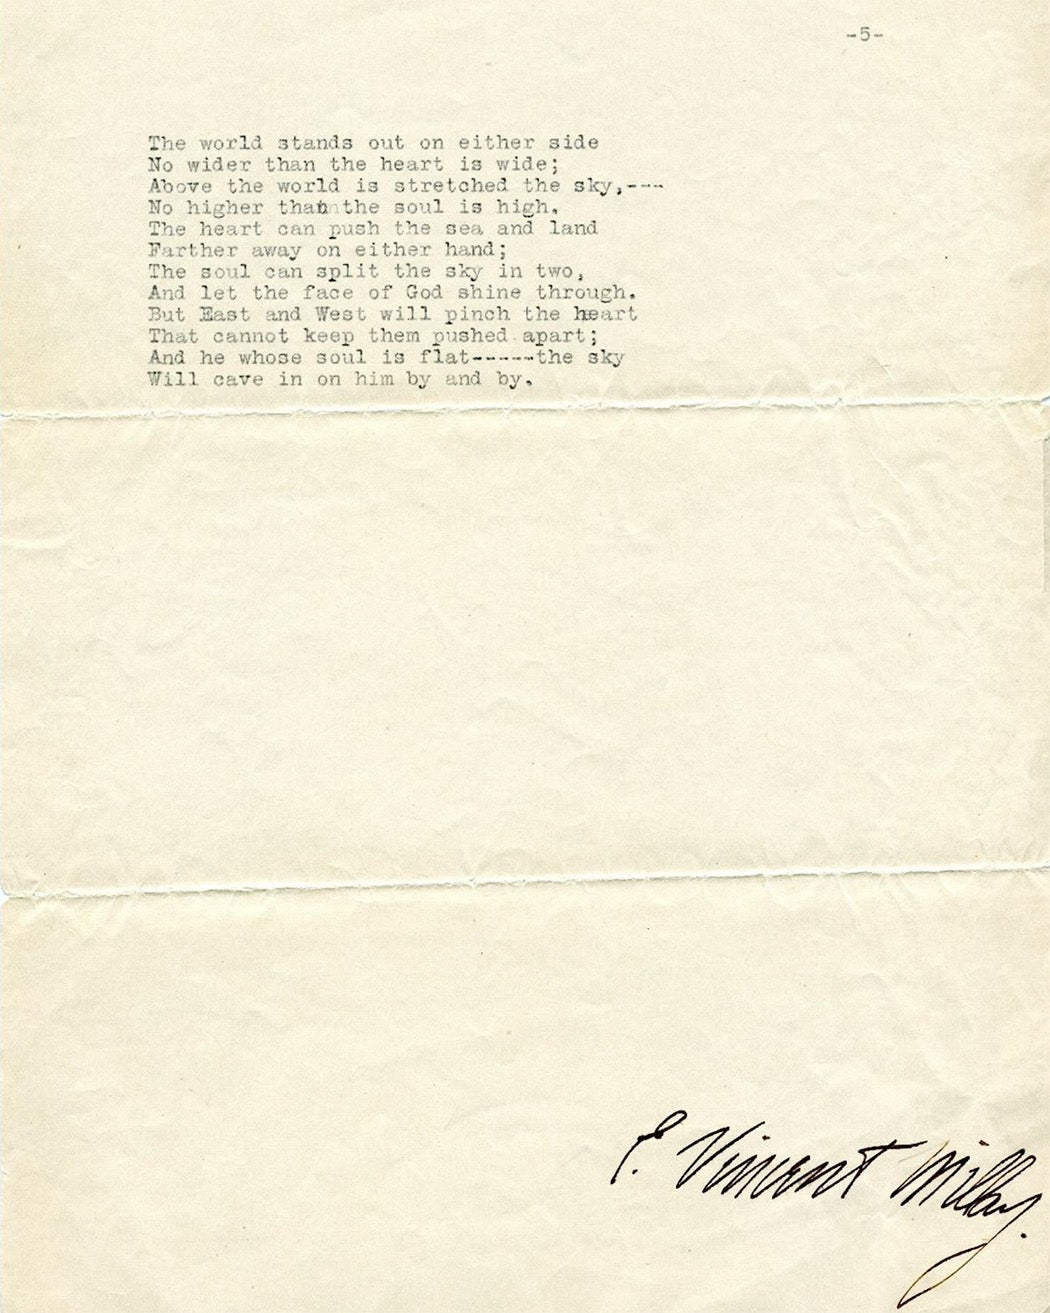 -5-
The world stands out on either side
No wider than the heart is wide;
Above the world is stretched the sky,---
No higher than the soul is high.
The heart can push the sea and land
Farther away on either hand;
The soul can split the sky in two,
And let the face of God shine through.
But East and West will pinch the heart
That cannot keep them pushed apart;
And he whose soul is flat-----the sky
Will cave in on him by and by.
E. Vincent Millay.